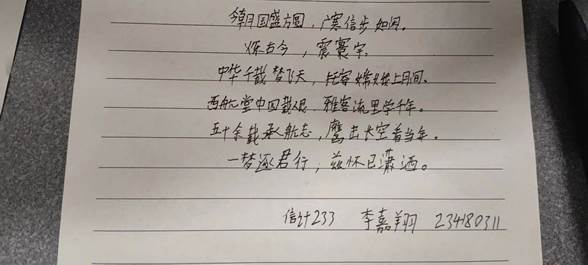 今朝国盛方圆,广寒信步如闲。
烁古今,震寰宇
中华千载梦飞天,嫦娥上月间。
西航堂中国载人,雅客流里学千年。
五十余载承航志,鹰击长空看当年。
一梦逐君行,兹怀已潇洒。
信计233 李嘉翔 234180311